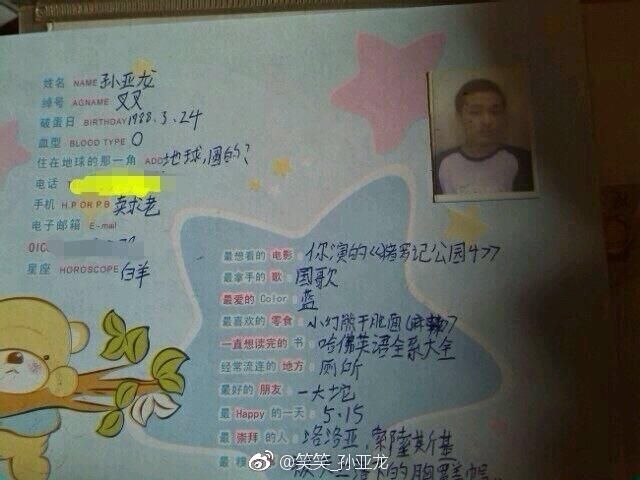 姓名 NAME 孙亚龙
绰号 AGNAME 叉叉
破蛋日 BIRTHDAY 1988.3.24
血型 BLOOD TYPE O
住在地球的那一角 ADD 地球,圆的?
电话
手机 H.P OR P.B 卖求老
电子邮箱 E-mail
OIC
星座 HOROSCOPE 白羊
最想看的 电影 你演的《猪罗记公园4》
最拿手的 歌 国歌
最爱的 Color 蓝
最喜欢的 零食 小幻熊干脆面(麻辣)
一直想读完的 书 哈佛英语全系大全
经常流连的 地方 厕所
最好的 朋友 一大坨
最 Happy 的一天 5.15
最 崇拜 的人 洛洛亚,索隆斯基
最
@笑笑_孙亚龙